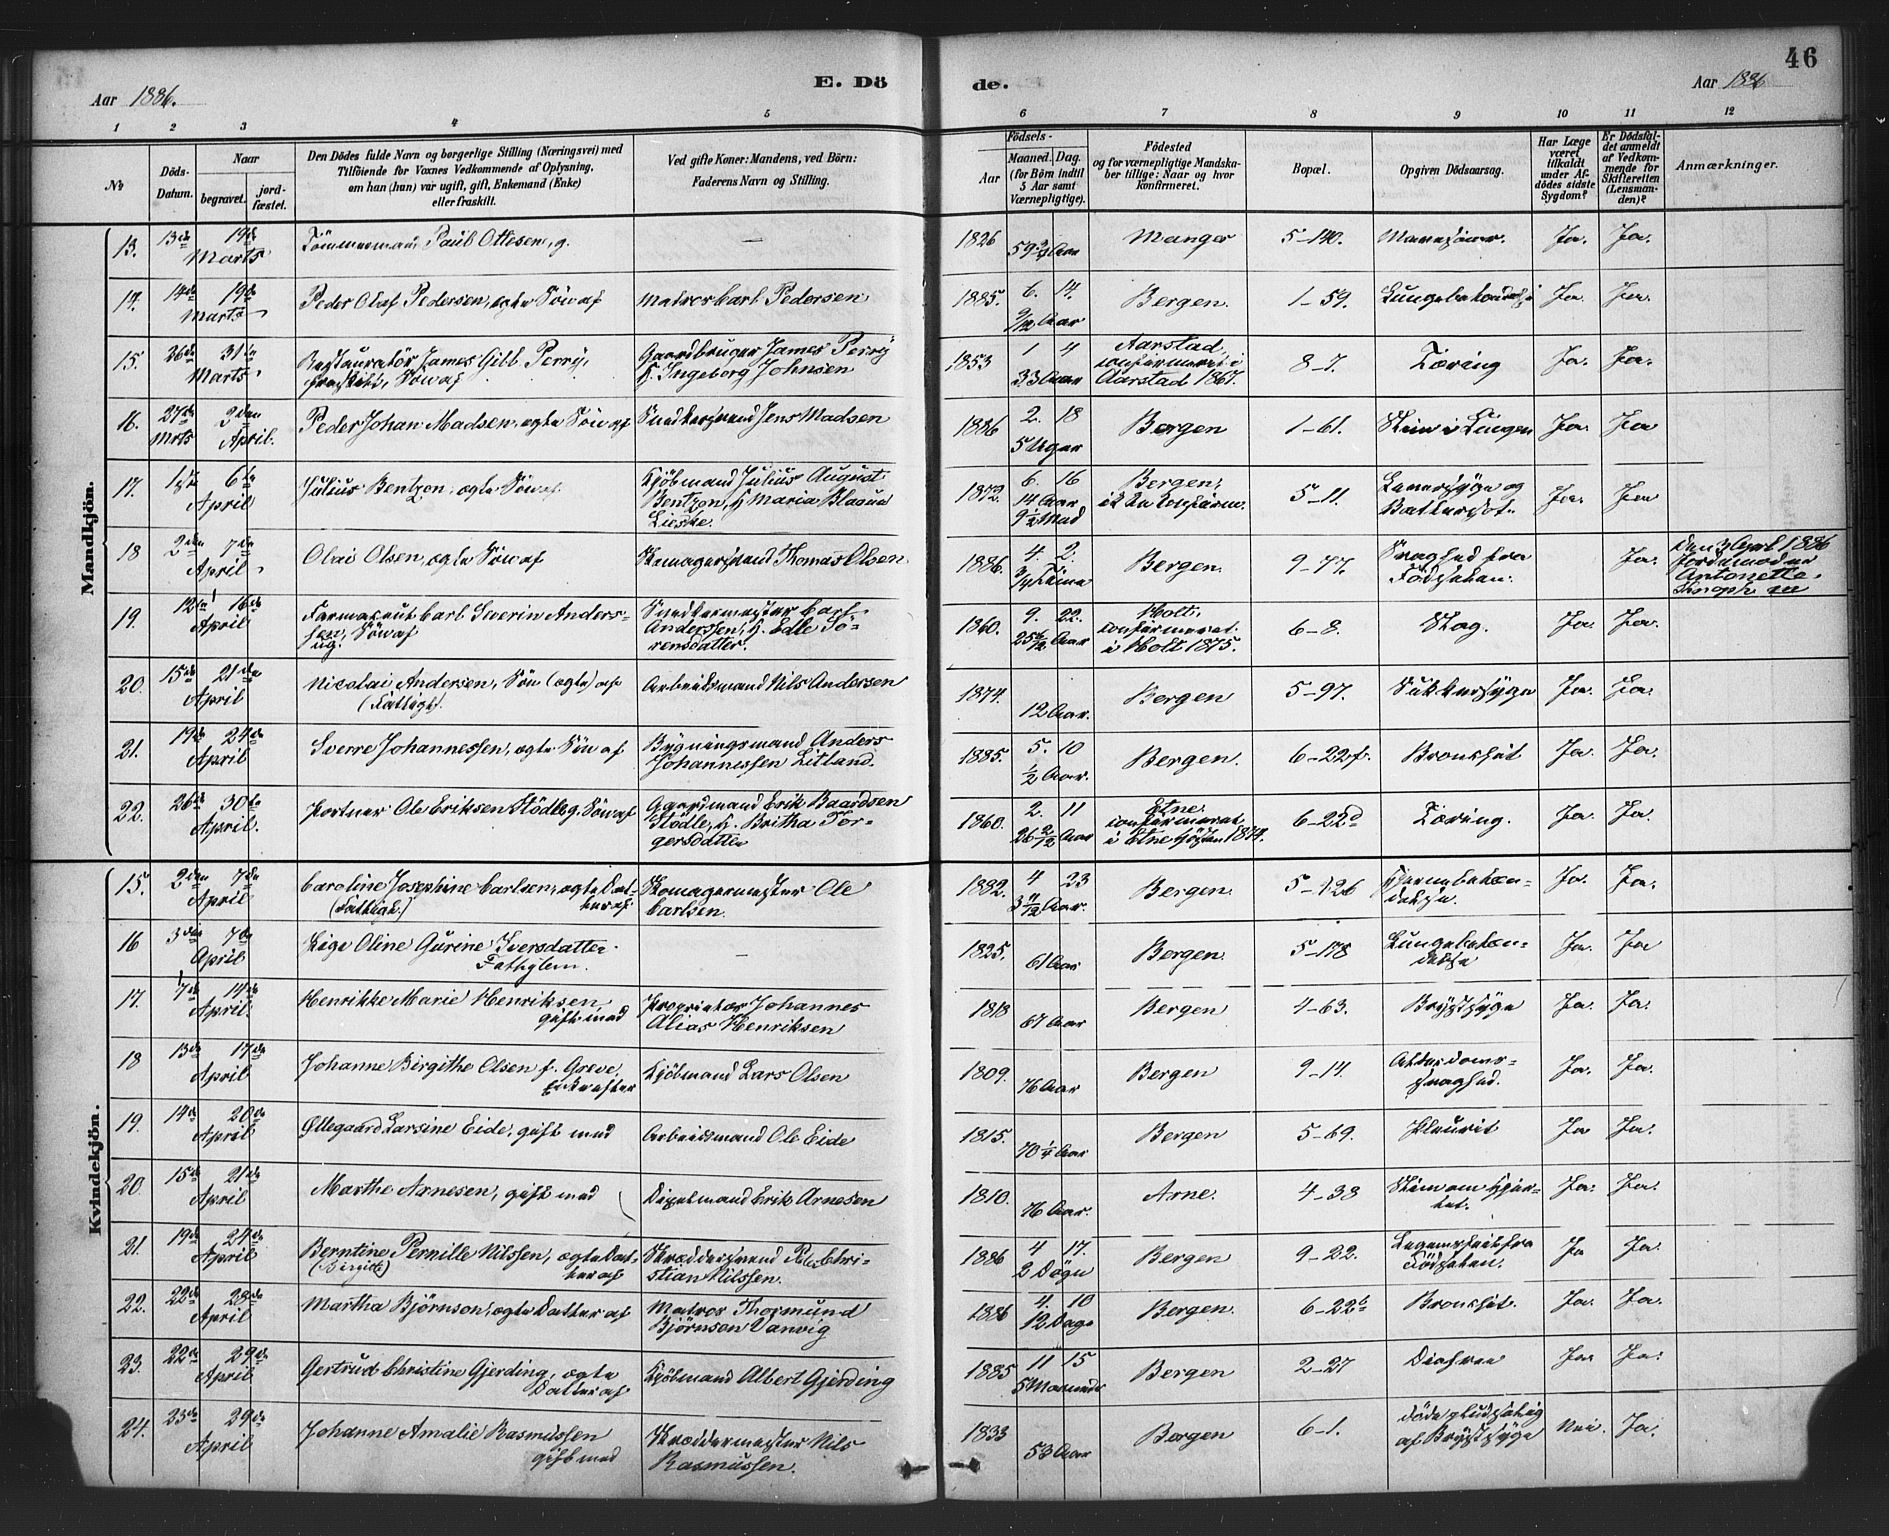 46
Aar 1886.
E. Döde.
Aar 1886
1 2 3 4 5 6 7 8 9 10 11 12
No
Döds-Datum.
Naar
begravet.
jord-fæstet.
Den Dödes fulde Navn og borgerlige Stilling (Næringsvei) med
Tilföiende for Voxnes Vedkommende af Oplysning,
om han (hun) var ugift, gift, Enkemand (Enke)
eller fraskilt.
Ved gifte Koner: Mandens, ved Börn:
Faderens Navn og Stilling.
Födsels-
Aar
Maaned. Dag.
(for Börn indtil
5 Aar samt
Værnepligtige).
Födested
og for værnepligtige Mandska-
ber tillige: Naar og hvor
konfirmeret.
Bopæl.
Opgiven Dödsaarsag.
Har Læge
været
tilkaldt
under Af-
dödes sidste
Sygdom?
Er Dödsfal-
det anmeldt
af Vedkom-
mende for
Skifteretten
(Lensman-
den)?
Anmærkninger.
Mandkjön.
13. 13de 19de Marts Tömmermand Paul Ottesen, g. — 1826 59 3/4 Aar Manger 5-140. Ja. Ja.
14. 14de 19de Marts Peder Olaf Pedersen, ægte Sön af Matros Carl Pedersen 1885. 6. 14. 9/12 Aar Bergen. 1-59. Lungebetændelse Ja. Ja.
15. 26de 31te Marts Restauratör James Gibb Perry, fraskilt, Sön af Gaardbruger James Perry H. Ingeborg Johnsen 1853 1 4 33 Aar Aarstad confirmeret i Aarstad 1867. 8-7. Tæring Ja. Ja.
16. 27de Mrts 3die April. Peder Johan Madsen, ægte Sön af Snedkersvend Jens Madsen 1886 2. 18 5 Uger Bergen 1-61. Ja. Ja
17. 1ste 6te April Julius Bentzen, ægte Sön af Kjöbmand Julius August Bentzen, H. Maria 1872. 6. 16 14 Aar 9 1/2 Mad Bergen, ikke confirm. 5-11. Leversyge og Vattersot. Ja. Ja
18 2den 7de April Olai Olsen, ægte Sön af Skomagersvend Thomas Olsen 1886. 4. 2. 3/4 Time Bergen. 9-77. Svaghed fra Födselen. Ja. Den 3 April 1886 Jordemoder Antonette
19. 12te 16de April Farmaceut Carl Severin Anderssen, ug. Sön af Snedkermester Carl Anderssen, H. Edle Sörensdatter. 1860. 9. 22. 25 6/12 Aar Holt. confirmeret i Holt 1875. 6-8. Slag. Ja. Ja.
20. 15de 21de April Nicolai Andersen, Sön (ægte) af (Fattigl.) Arbeidsmand Nils Andersen 1874. 12 Aar. Bergen 5-97. Sukkersyge Ja. Ja.
21. 19de 24de April Sverre Johannessen, ægte Sön af Bygningsmand Anders Johannessen Litland. 1885. 5. 10 1/2 Aar. Bergen. 6-22f. Bronchit Ja. Ja.
22. 26de 30te April. Portner Ole Eriksen Stödle, g. Sön af Gaardmand Erik Baardsen Stödle, H. Britha Torgersdatter 1860. 2. 11 26 2/12 Aar Etne. confirmeret i Etne 1874. 6-22d Tæring. Ja. Ja.
Kvindekjön.
15. 2den 7de April Caroline Josephine Carlsen, ægte Datter af (Fattigl.) Skomagermester Ole Carlsen. 1882. 4 23 3 11/12 Aar. Bergen. 5-126 Hjernebetændelse. Ja. Ja.
16 3die 7de April Pige Oline Gurine Iversdatter. Fattiglem. — 1825. 61 Aar Bergen. 5-178 Lungebetændelse Ja. Ja
17. 7de 14de April Henrikke Marie Henriksen, gift med Proprietær Johannes Alias Henriksen 1818 67 Aar Bergen 4-63. Brystsyge Ja. Ja.
18 13de 17de April Johanne Birgithe Olsen f. Greve, Enke efter Kjöbmand Lars Olsen 1809. 76 Aar Bergen 9-14. Alderdomssvaghed. Ja. Ja.
19. 14de 20de April Øllegaard Larsine Eide, gift med Arbeidsmand Ole Eide 1815. 70 1/4 Aar Bergen 5-69. Pleurit Ja Ja.
20. 15de 21de April Marthe Arnesen, gift med Erik Arnesen 1810. 76 Aar. Arne. 4-38 Ja. Ja.
21. 19de 24de April Berntine Pernille Nilssen, ægte Datter af (Birgith) Skreddersvend Christian Nilssen. 1886 4 17. 2 Dögn Bergen 9-22. fra Födselen. Ja Ja.
22. 22de 28de April Martha Björnson, ægte Datter af Matros Thormund Björnson Vanvig 1886 4. 10 12 Dage Bergen. 6-22b Bronchit. Ja. Ja.
23. 22de 29de April Gertrud Christine Gjerding, ægte Datter af Kjöbmand Albert Gjerding 1885 11 15 5 Maaneder Bergen 2-27 Diarree Ja. Ja.
24. 23de 29de April Johanne Amalie Rasmussen gift med Skræddermester Nils Rasmussen. 1833 53 Aar Bergen 6-1. döde pludselig af Brystsyge Nei. Ja.